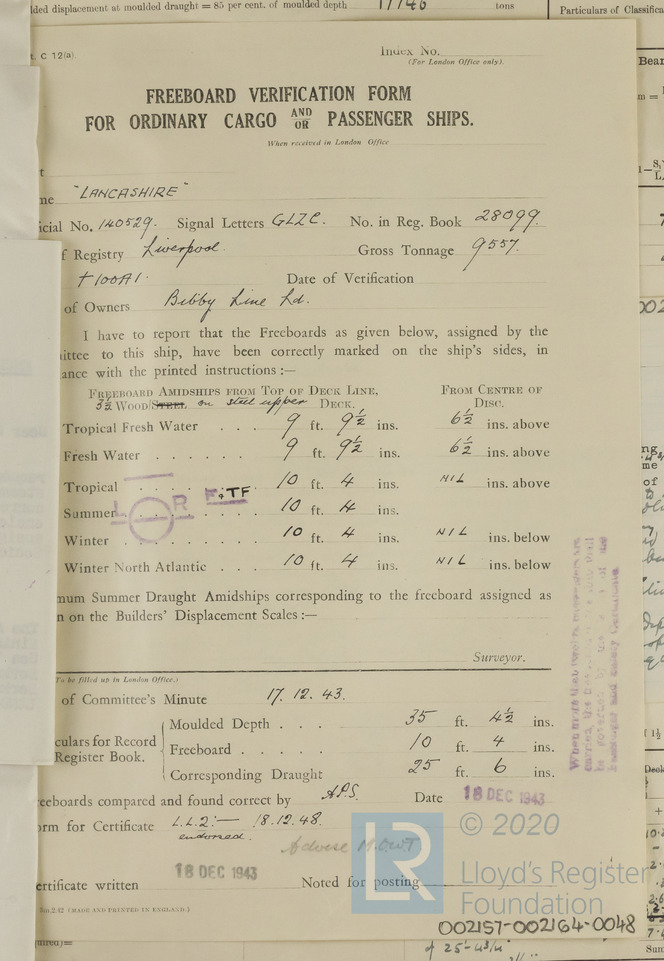 lded displacement at moulded draught = 85 per cent. of moulded depth 17746 tons Particulars of Classifica
t. C 12(a).
Index No.
(For London Office only).
FREEBOARD VERIFICATION FORM
FOR ORDINARY CARGO AND/OR PASSENGER SHIPS.
When received in London Office
t
ne "LANCASHIRE"
icial No. 140529. Signal Letters GLZC. No. in Reg. Book 28099.
f Registry Liverpool. Gross Tonnage 9557.
+100A1. Date of Verification
of Owners Bibby Line Ld.
I have to report that the Freeboards as given below, assigned by the
ittee to this ship, have been correctly marked on the ship's sides, in
ance with the printed instructions :—
FREEBOARD AMIDSHIPS FROM TOP OF DECK LINE, FROM CENTRE OF
3½ WOOD/STEEL on steel upper DECK. DISC.
Tropical Fresh Water . . . 9 ft. 9½ ins. 6½ ins. above
Fresh Water . . . 9 ft. 9½ ins. 6½ ins. above
Tropical . . . . 10 ft. 4 ins. NIL ins. above
L R F. TF
Summer . . . . . 10 ft. 4 ins.
Winter . . . . . . 10 ft. 4 ins. NIL ins. below
Winter North Atlantic . . 10 ft. 4 ins. NIL ins. below
mum Summer Draught Amidships corresponding to the freeboard assigned as
n on the Builders' Displacement Scales :—
Surveyor.
To be filled up in London Office.)
of Committee's Minute 17. 12. 43.
Moulded Depth . . . 35 ft. 4½ ins.
culars for Record
Register Book.
Freeboard . . . . . 10 ft. 4 ins.
Corresponding Draught 25 ft. 6 ins.
eeboards compared and found correct by A.P.S. Date 18 DEC 1943
orm for Certificate L.L.2:— 18.12.48.
endorsed.
Advise M.O.W.T
ertificate written 18 DEC 1943 Noted for posting
3m.2.42 (MADE AND PRINTED IN ENGLAND.)
LR
© 2020
Lloyd's Register
Foundation
002157-002164-0048